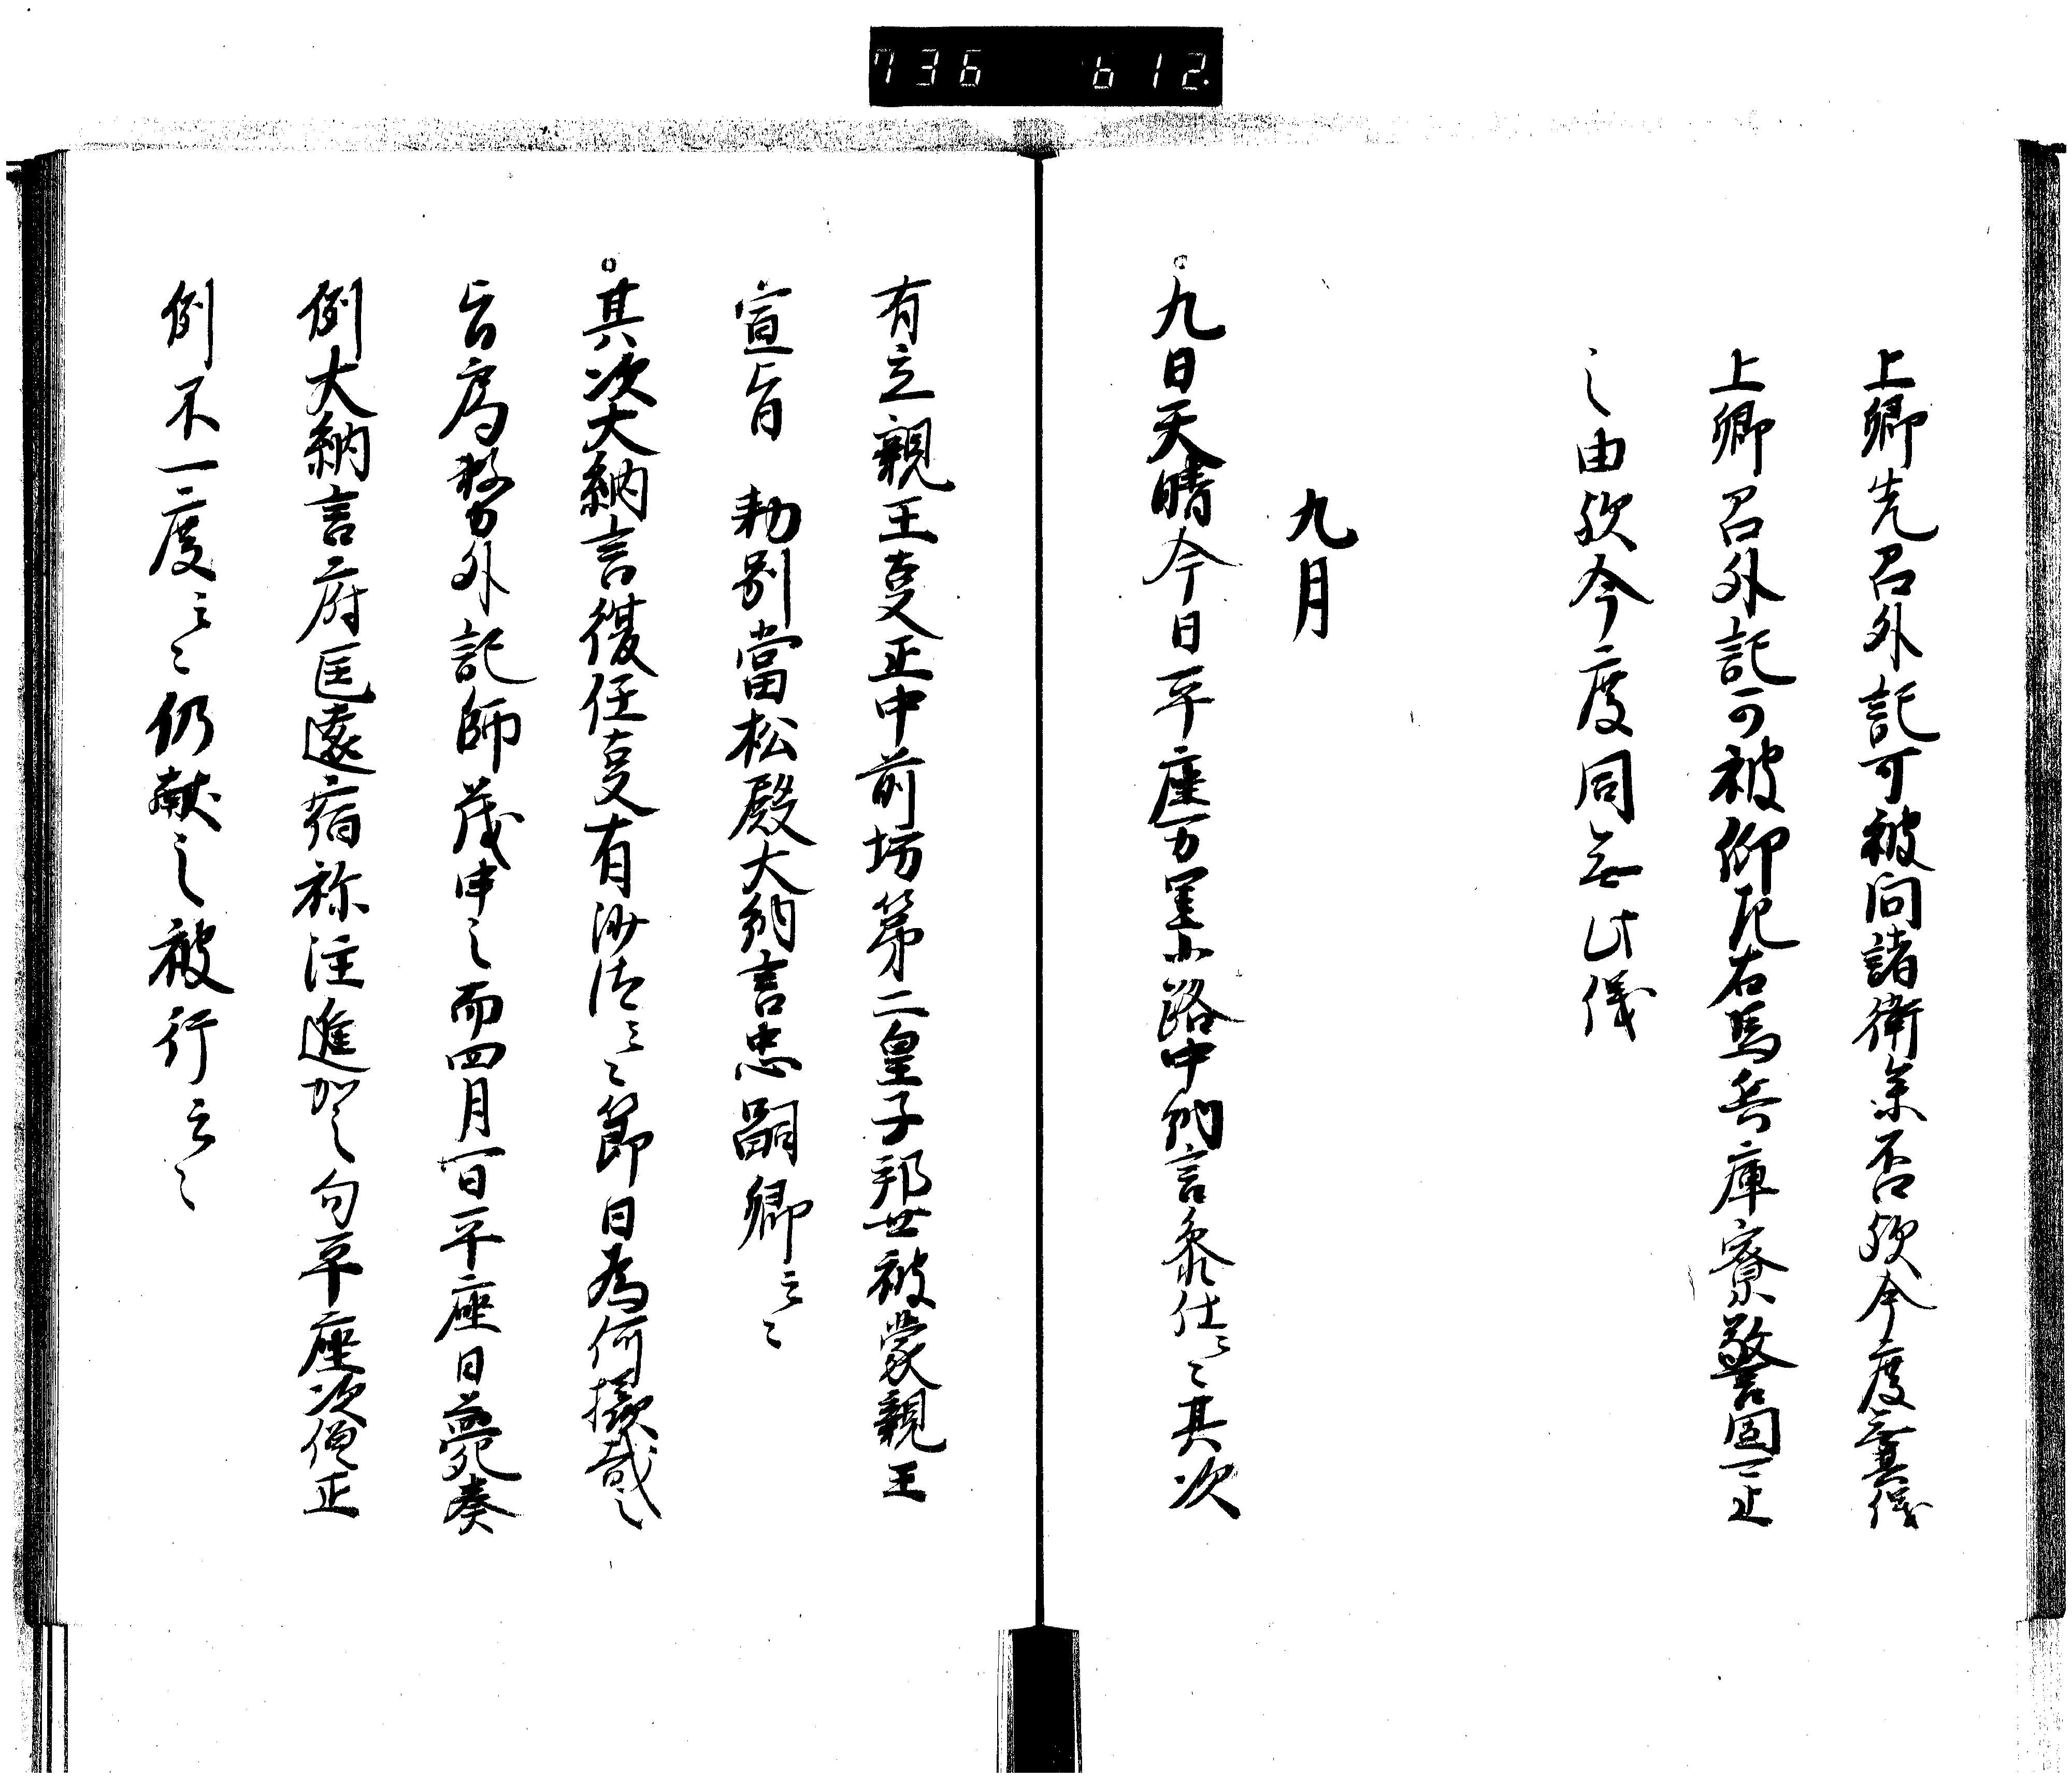 736 612
上卿先召外記可被問諸衛参否歟今度無其儀
上卿召外記可被仰左右馬兵庫寮警固可止
之由歟今度同無此儀
九月
九日天晴今日平座万里小路中納言参仕云々其次
有立親王事正中前坊第二皇子邦世被蒙親王
宣旨 勅別當松殿大納言忠嗣卿云々
其次大納言復任事有沙汰云々節日為何様哉之
旨為務外記師茂申之而四月一日平座日薨奏
例大納言府匡遠宿祢注進加之旬平座次僧正
例不一度云々仍献之被行云々